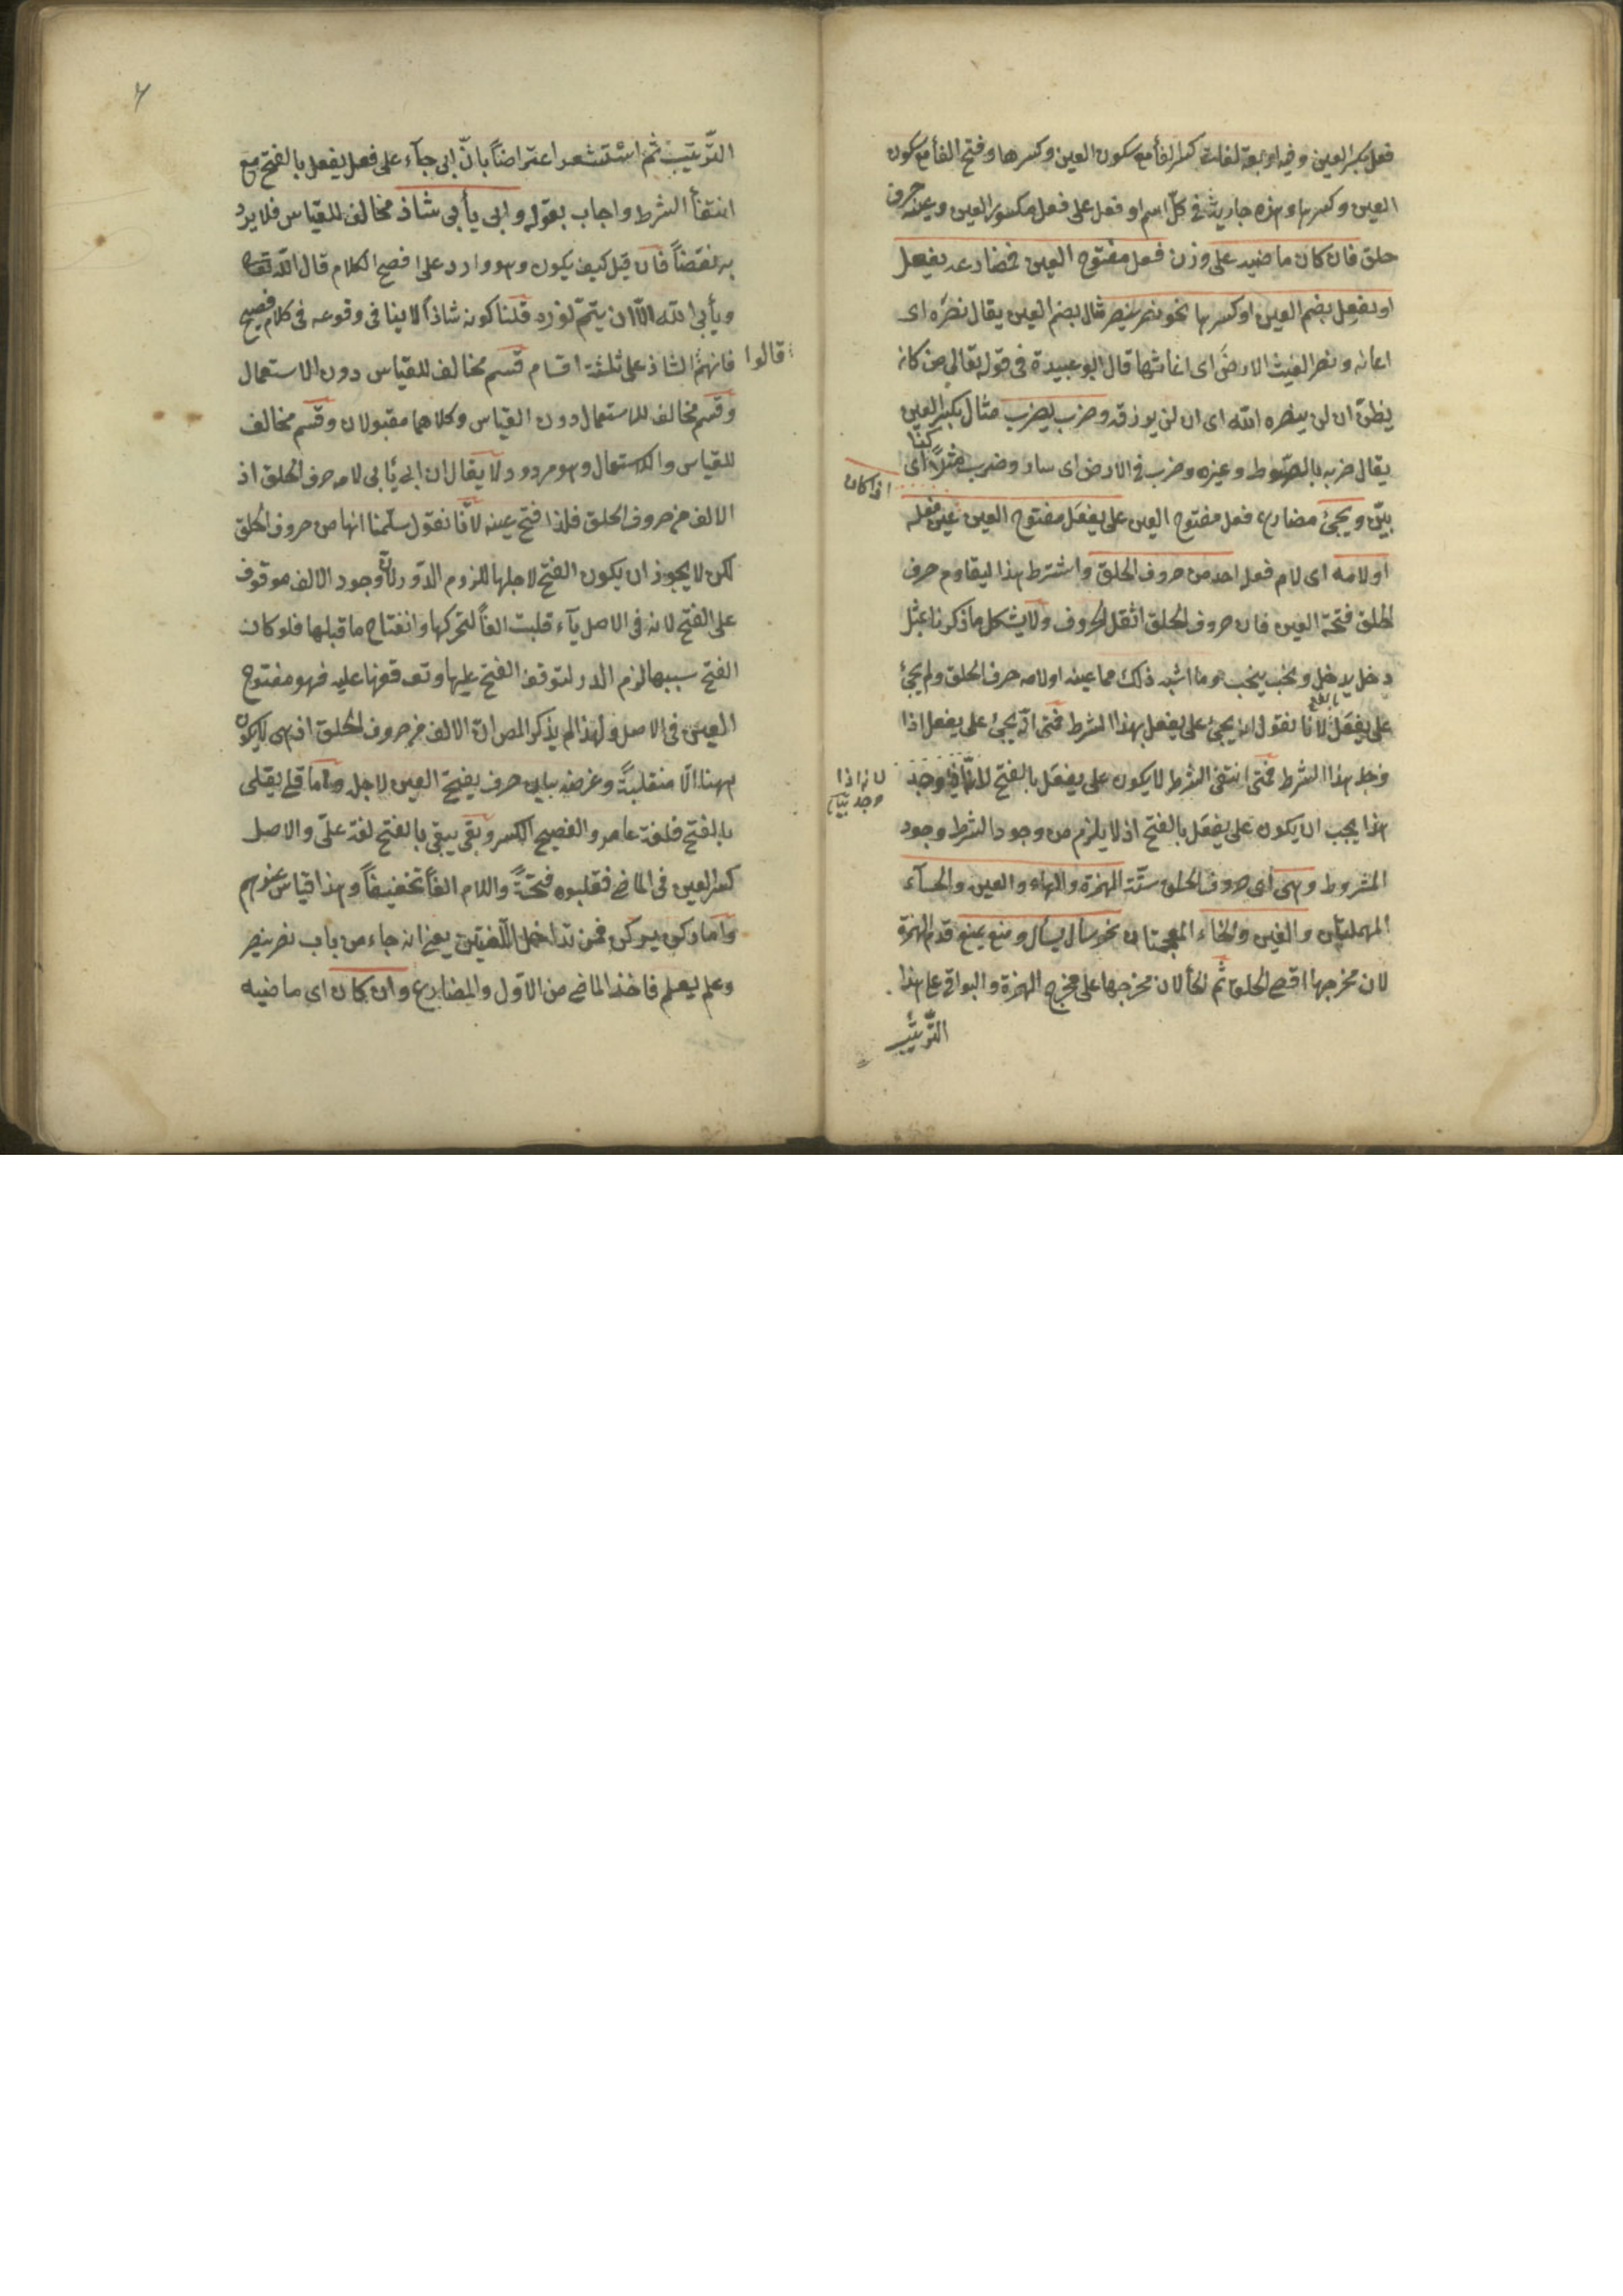 فعل بكسر العين وفيه اربعة لغات كسر الفأ مع سكون العين وكسرها وفتح الفأ مع سكون
العين وكسرها وهذه جارية فى كلّ اسم او فعل على فعل مكسور العين وعينه حرف
حلق فان كان ماضيه على وزن فعل مفتوح العين فمضارعه يفعل
او يفعل بضم العين او كسرها نحو نصر ينصر مثال بضم العين يقال نصره اى
اعانه ونصر الغيث الارض اى اغاثها قال ابو عبيدة فى قوله تعالى من كان
يظنّ ان لن ينصره الله اى ان لن يرزقه وضرب يضرب مثال بكسر العين
يقال ضربه بالسّوط وغيره وضرب فى الارض اى سار وضرب مثلاً كذا اى
بيّن ويجئ مضارع فعل مفتوح العين على يفعل مفتوح العين اذا كان عين فعله
او لامه اى لام فعل احد من حروف الحلق واشترط هذا ليقاوم حرف
الحلق فتحة العين فان حروف الحلق اثقل الحروف ولا يشكل ما ذكرنا بمثل
دخل يدخل ونحب ينحب وما اشبه ذلك مما عينه او لامه حرف الحلق ولم يجئ
على يفعل بالفتح لانا نقول انه يجئ على يفعل بهذا الشرط فمتى انه يجئ على يفعل اذا
وجد هذا الشرط فمتى انتفى الشرط لا يكون على يفعل بالفتح لا انه اذا وجد
هذا يجب ان يكون على يفعل بالفتح اذ لا يلزم من وجود الشرط وجود
المشروط وهى اى حروف الحلق ستّة الهمزة والهاء والعين والحآء
المهملتان والغين والخاء المعجمتان نحو سأل يسأل ومنع يمنع قدم الهمزة
لان مخرجها اقصى الحلق ثم الهأ لان مخرجها على مخرج الهمزة والبواقى على هذا
التّرتيب
التّرتيب ثم استشعر اعتراضاً بانّ ابى جآء على فعل يفعل بالفتح مع
انتفأ الشرط واجاب بقوله وابى يأبى شاذ مخالف للقياس فلا يرد
به نقضاً فان قيل كيف يكون وهو وارد على افصح الكلام قال الله تعالى
ويأبى الله الّا ان يتمّ نوره قلنا كونه شاذاً لا ينافى وقوعه فى كلام فصيح
قالوا فانهم الشاذ على ثلثة اقسام قسم مخالف للقياس دون الاستعمال
وقسم مخالف للاستعمال دون القياس وكلاهما مقبولان وقسم مخالف
للقياس والاستعمال وهو مردود لا يقال ان ابى يأبى لامه حرف الحلق اذ
الالف من حروف الحلق فلذا فتح عينه لانّا نقول سلّمنا انها من حروف الحلق
لكن لا يجوز ان يكون الفتح لاجلها للزوم الدّور لانّ وجود الالف موقوف
على الفتح لانه فى الاصل يآء قلبت الفاً لتحركها وانفتاح ما قبلها فلو كان
الفتح سببها لزم الدور لتوقف الفتح عليها وتوقفها عليه فهو مفتوح
العين فى الاصل ولهذا لم يذكر المص انّ الالف من حروف الحلق اذ هى لا يكون
ههنا الّا منقلبةً وغرضه بيان حرف يفتح العين لاجله واما قلى يقلى
بالفتح فلغة عامر والفصيح الكسر وبقى يبقى بالفتح لغة طىّ والاصل
كسر العين فى الماضى فقلبوه فتحةً واللام الفاً تخفيفاً وهذا قياس عندهم
واما ركن يركن فمن تداخل اللّغتين يعنى انه جاء من باب نصر ينصر
وعلم يعلم فاخذ الماضى من الاوّل والمضارع وان كان اى ماضيه